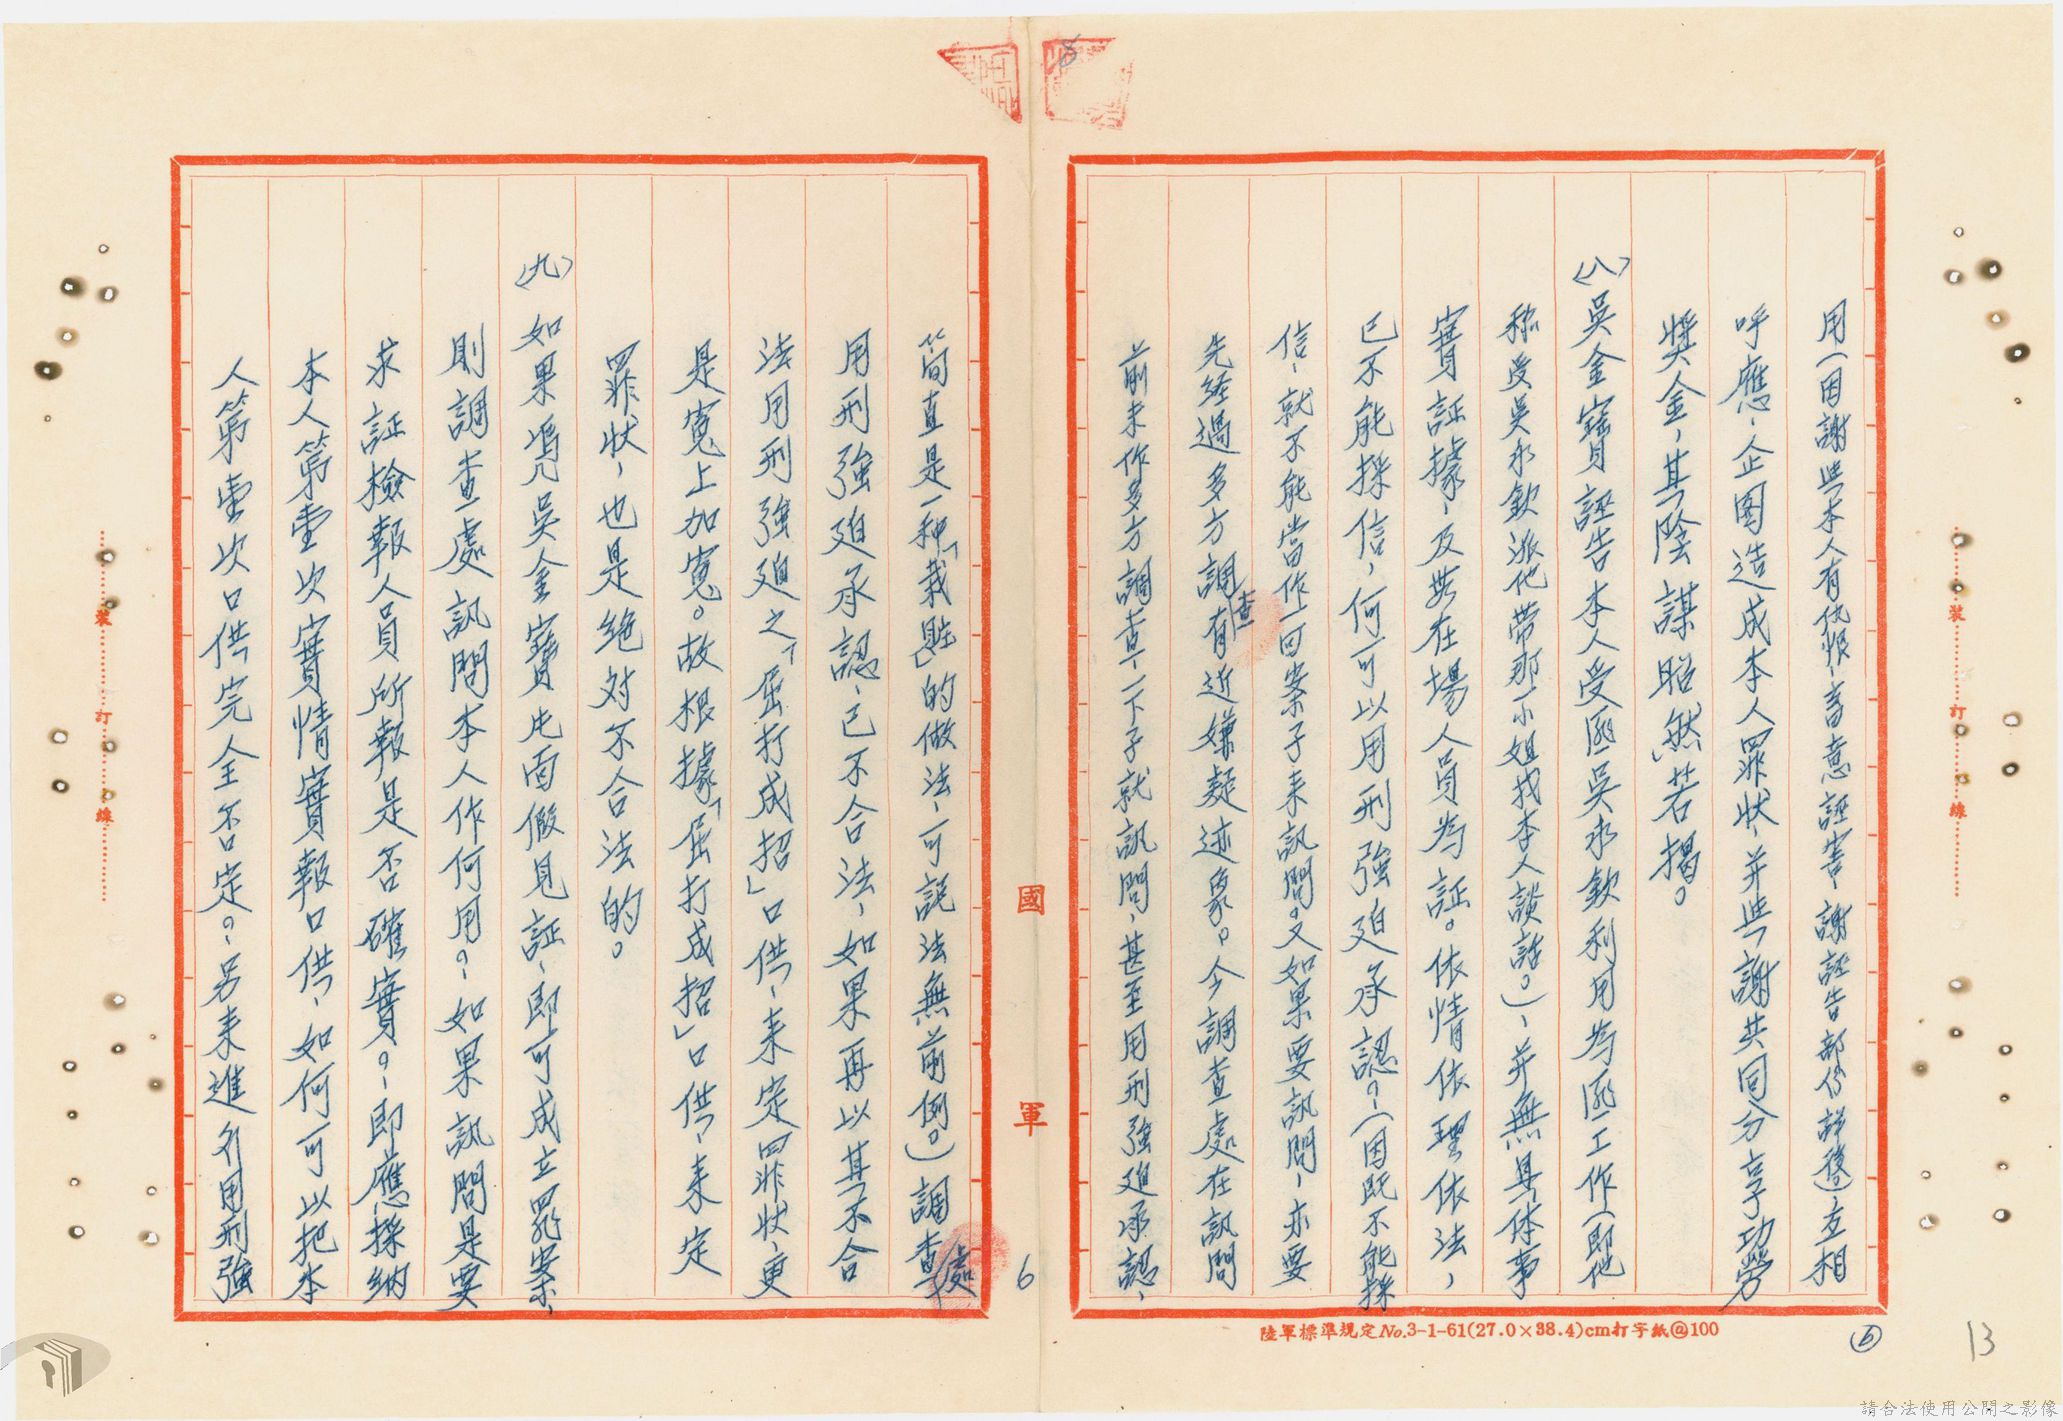 用(因謝與本人有仇恨、蓄意誣害、謝誣告部份詳後)互相
呼應、企图造成本人罪狀、并與謝共同分享功勞
獎金、其「陰謀昭然」若揭。
〈八〉吳金寶誣告本人受匪吳永欽利用為匪工作(即他
称受吳永欽派他带那一小姐找本人談話。)、并無具体事
實証據、及無在場人員为証。依情依理依法,
已不能採信,何可以用刑強迫承認。(因既不能採
信、就不能當作一回案子来訊問。又如果要訊問、亦要
先经過多方調查有近嫌疑迹象。今調查處在訊問
前未作多方調查、一下子就訊問,甚至用刑強迫承認、
簡直是一种「栽贓」的做法、可説法無前例。)調查處
用刑強迫承認、已不合法、如果再以其不合
法用刑強迫之「屈打成招」口供、来定罪狀、更
是寃上加寃。故根據「屈打成招」口供、来定
罪狀、也是绝对不合法的。
〈九〉如果凴吳金寶片面假見証、即可成立罪案、
則調查處訊問本人作何用。如果訊問是要
求証檢報人員所報是否確實。即應採納
本人第壹次實情實報口供、如何可以把本
人第壹次口供完全否定。另来進行用刑強
國軍
6
陸軍標準規定No.3-1-61(27.0×38.4)cm打字紙@100
6
13
8
裝訂線
裝訂線
請合法使用公開之影像